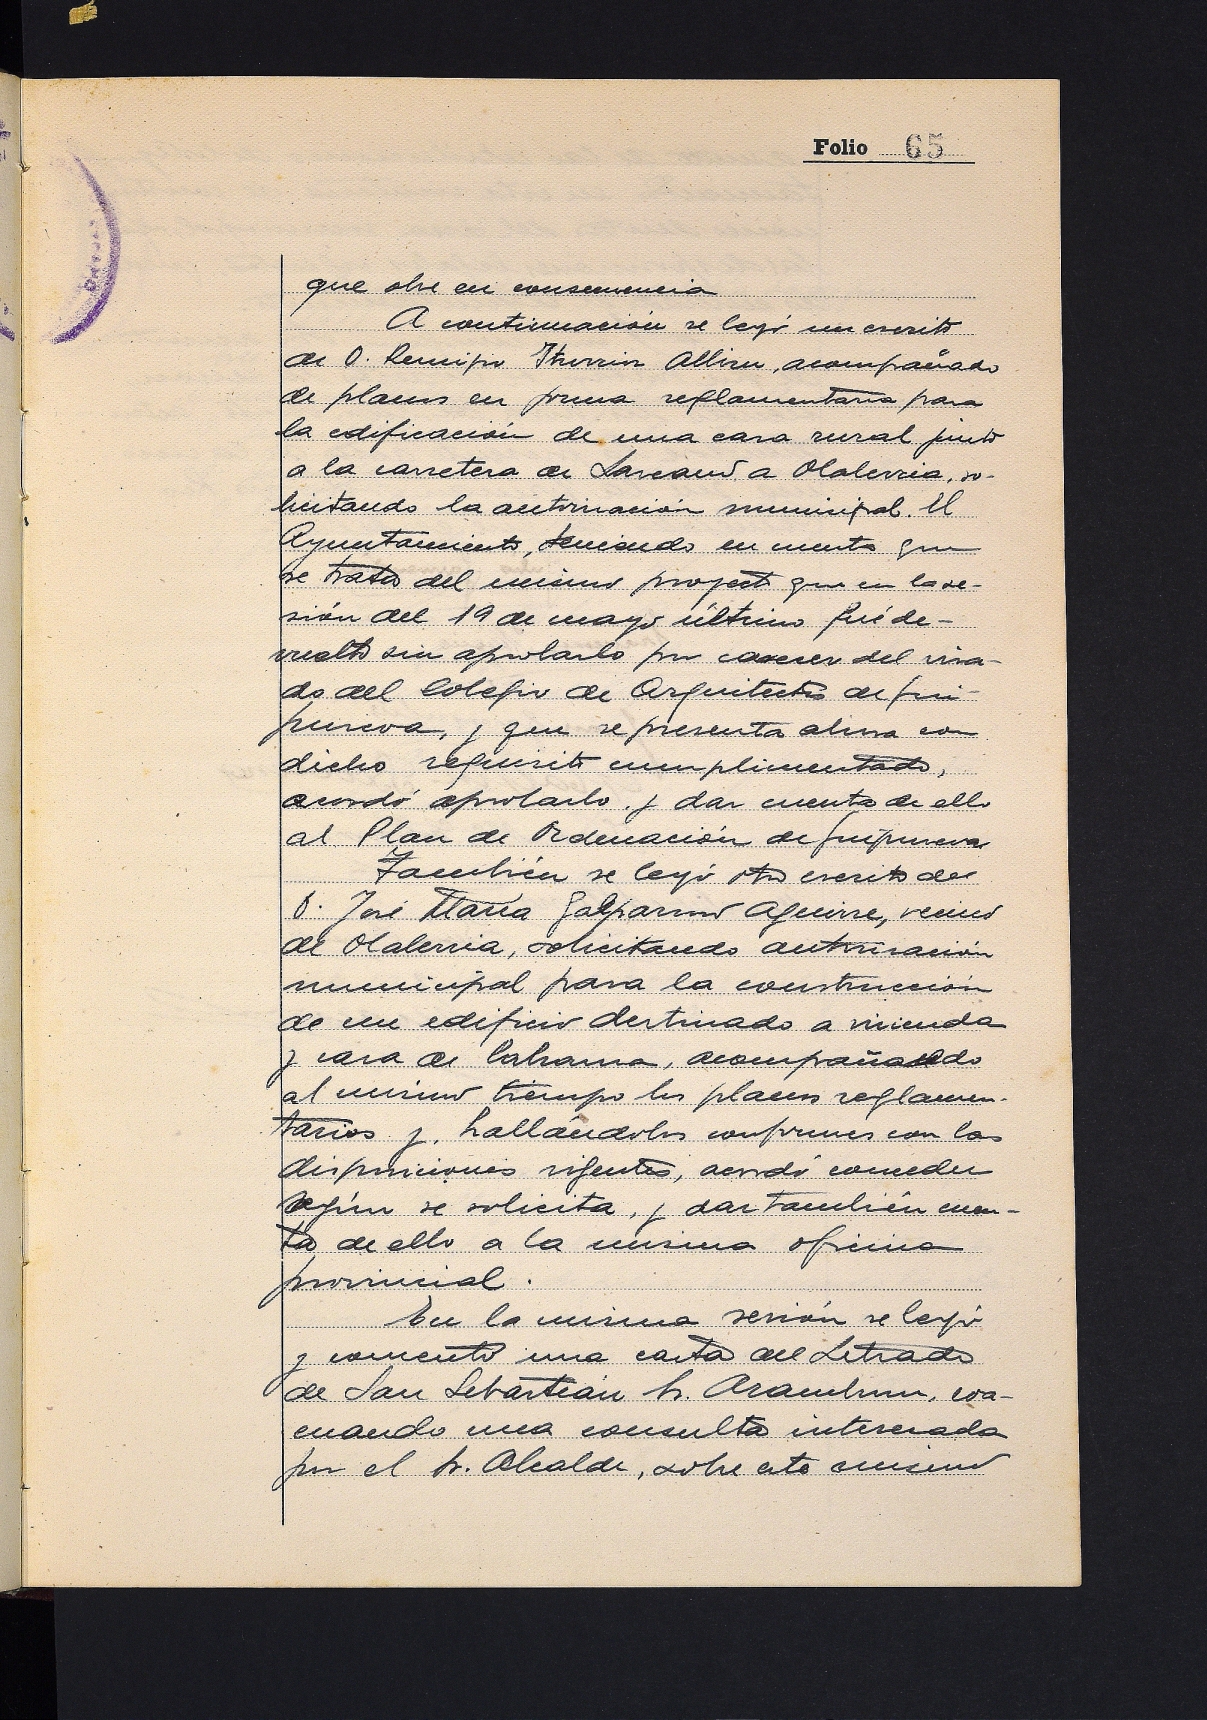 Folio 65
que obre en consecuencia
A continuación se leyó un escrito
de D. Remigio Iturrioz Allizu, acompañado
de planos en forma reglamentaria para
la edificación de una casa rural junto
a la carretera de Lazcano a Olaberria, so-
licitando la autorización municipal. El
Ayuntamiento, teniendo en cuenta que
se trata del mismo proyecto que en la se-
sión del 19 de mayo último fué de-
vuelto sin aprobarlo por carecer del visa-
do del Colegio de Arquitectos de Gui-
púzcoa, y que se presenta ahora con
dicho requisito cumplimentado,
acordó aprobarlo y dar cuenta de ello
al Plan de Ordenación de Guipúzcoa
También se leyó otro escrito de
D. José María Galparsoro Aguirre, vecino
de Olaberria, solicitando autorización
municipal para la construcción
de un edificio destinado a vivienda
y casa de labranza, acompañando
al mismo tiempo los planos reglamen-
tarios y, hallándolos conformes con las
disposiciones vigentes, acordó conceder
según se solicita, y dar también cuen-
ta de ello a la misma oficina
provincial.
En la misma sesión se leyó
y comentó una carta del Letrado
de San Sebastián Sr. Aramburu, eva-
cuando una consulta interesada
por el Sr. Alcalde, sobre este mismo